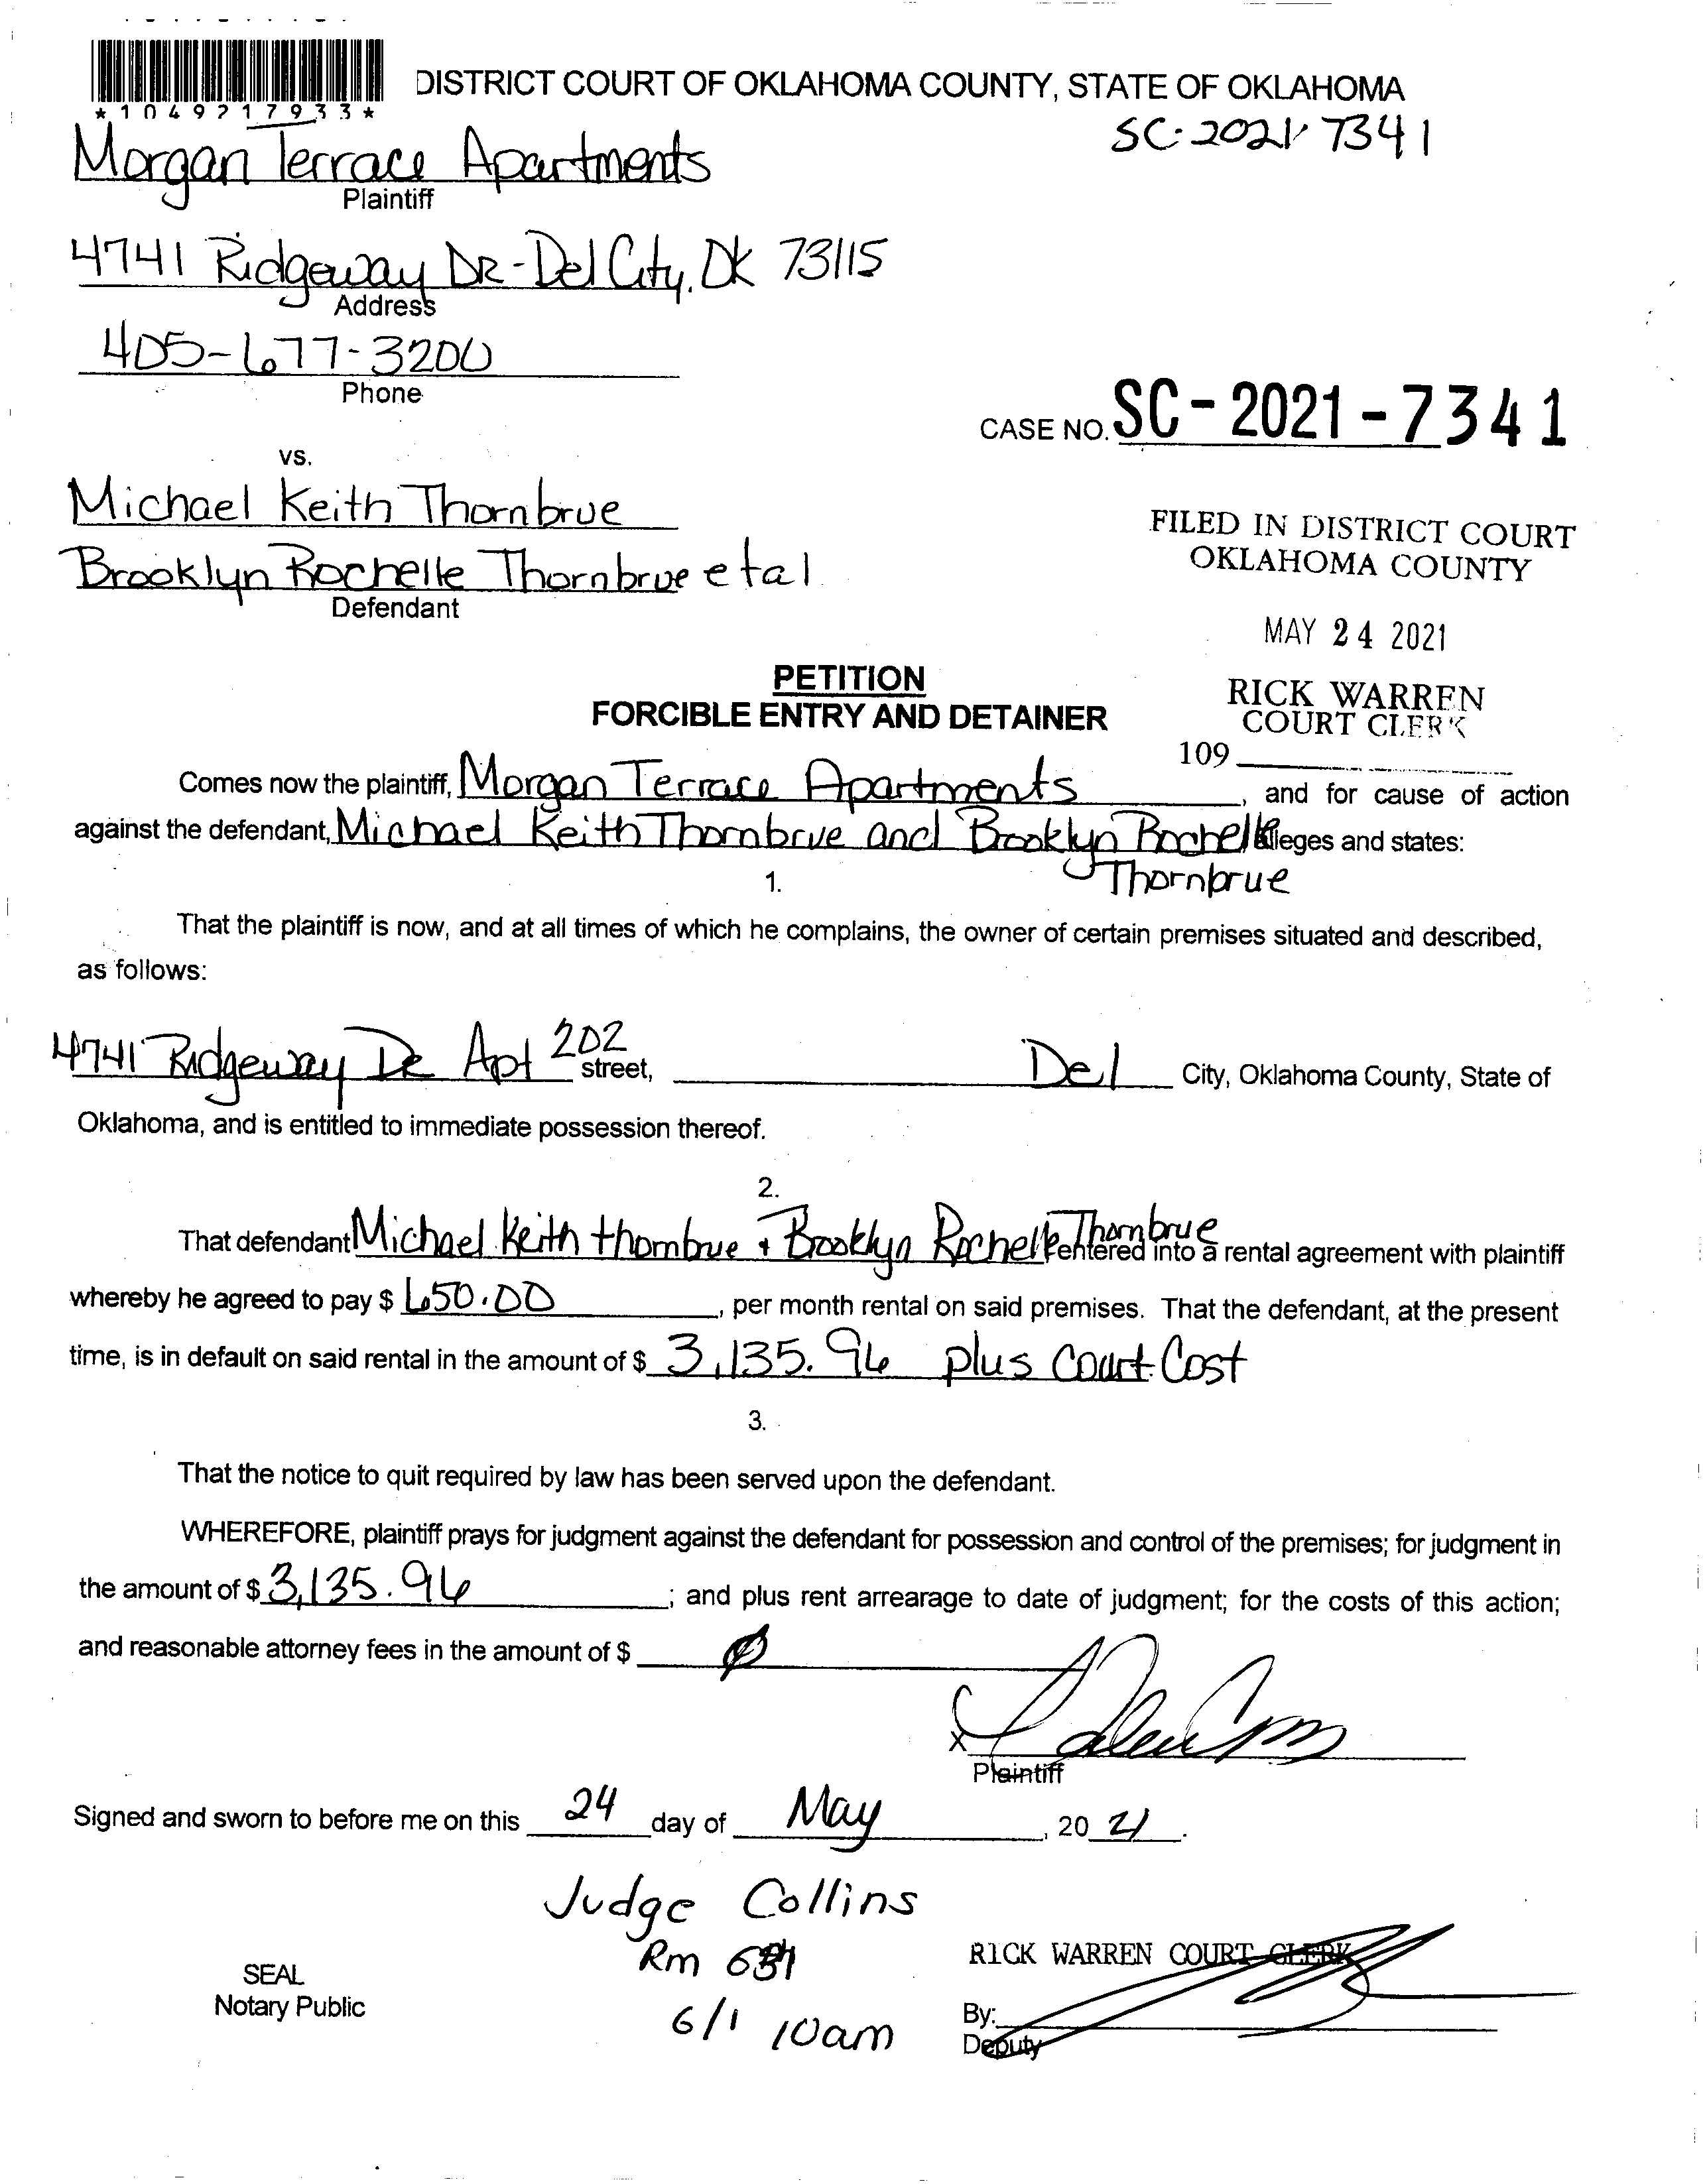 *1049217933*
DISTRICT COURT OF OKLAHOMA COUNTY, STATE OF OKLAHOMA
SC-2021-7341
Morgan Terrace Apartments
Plaintiff
4741 Ridgeway DR-Del City, OK 73115
Address
405-677-3200
Phone
CASE NO. SC-2021-7341
vs.
Michael Keith Thornbrue
Brooklyn Rochelle Thornbrue et al
Defendant
FILED IN DISTRICT COURT
OKLAHOMA COUNTY
MAY 24 2021
RICK WARREN
COURT CLERK
109
PETITION
FORCIBLE ENTRY AND DETAINER
Comes now the plaintiff, Morgan Terrace Apartments, and for cause of action
against the defendant, Michael Keith Thornbrue and Brooklyn Rochelle alleges and states:
Thornbrue
1.
That the plaintiff is now, and at all times of which he complains, the owner of certain premises situated and described,
as follows:
4741 Ridgeway DR Apt 202 street, Del City, Oklahoma County, State of
Oklahoma, and is entitled to immediate possession thereof.
2.
That defendant Michael Keith thornbrue + Brooklyn Rochelle Thornbrue entered into a rental agreement with plaintiff
whereby he agreed to pay $ 650.00, per month rental on said premises. That the defendant, at the present
time, is in default on said rental in the amount of $ 3,135.96 plus Court Cost
3.
That the notice to quit required by law has been served upon the defendant.
WHEREFORE, plaintiff prays for judgment against the defendant for possession and control of the premises; for judgment in
the amount of $ 3,135.96; and plus rent arrearage to date of judgment; for the costs of this action;
and reasonable attorney fees in the amount of $ Ø
X
Plaintiff
Signed and sworn to before me on this 24 day of May, 20 21.
Judge Collins
Rm
6/1 10am
SEAL
Notary Public
RICK WARREN COURT CLERK
By:
Deputy